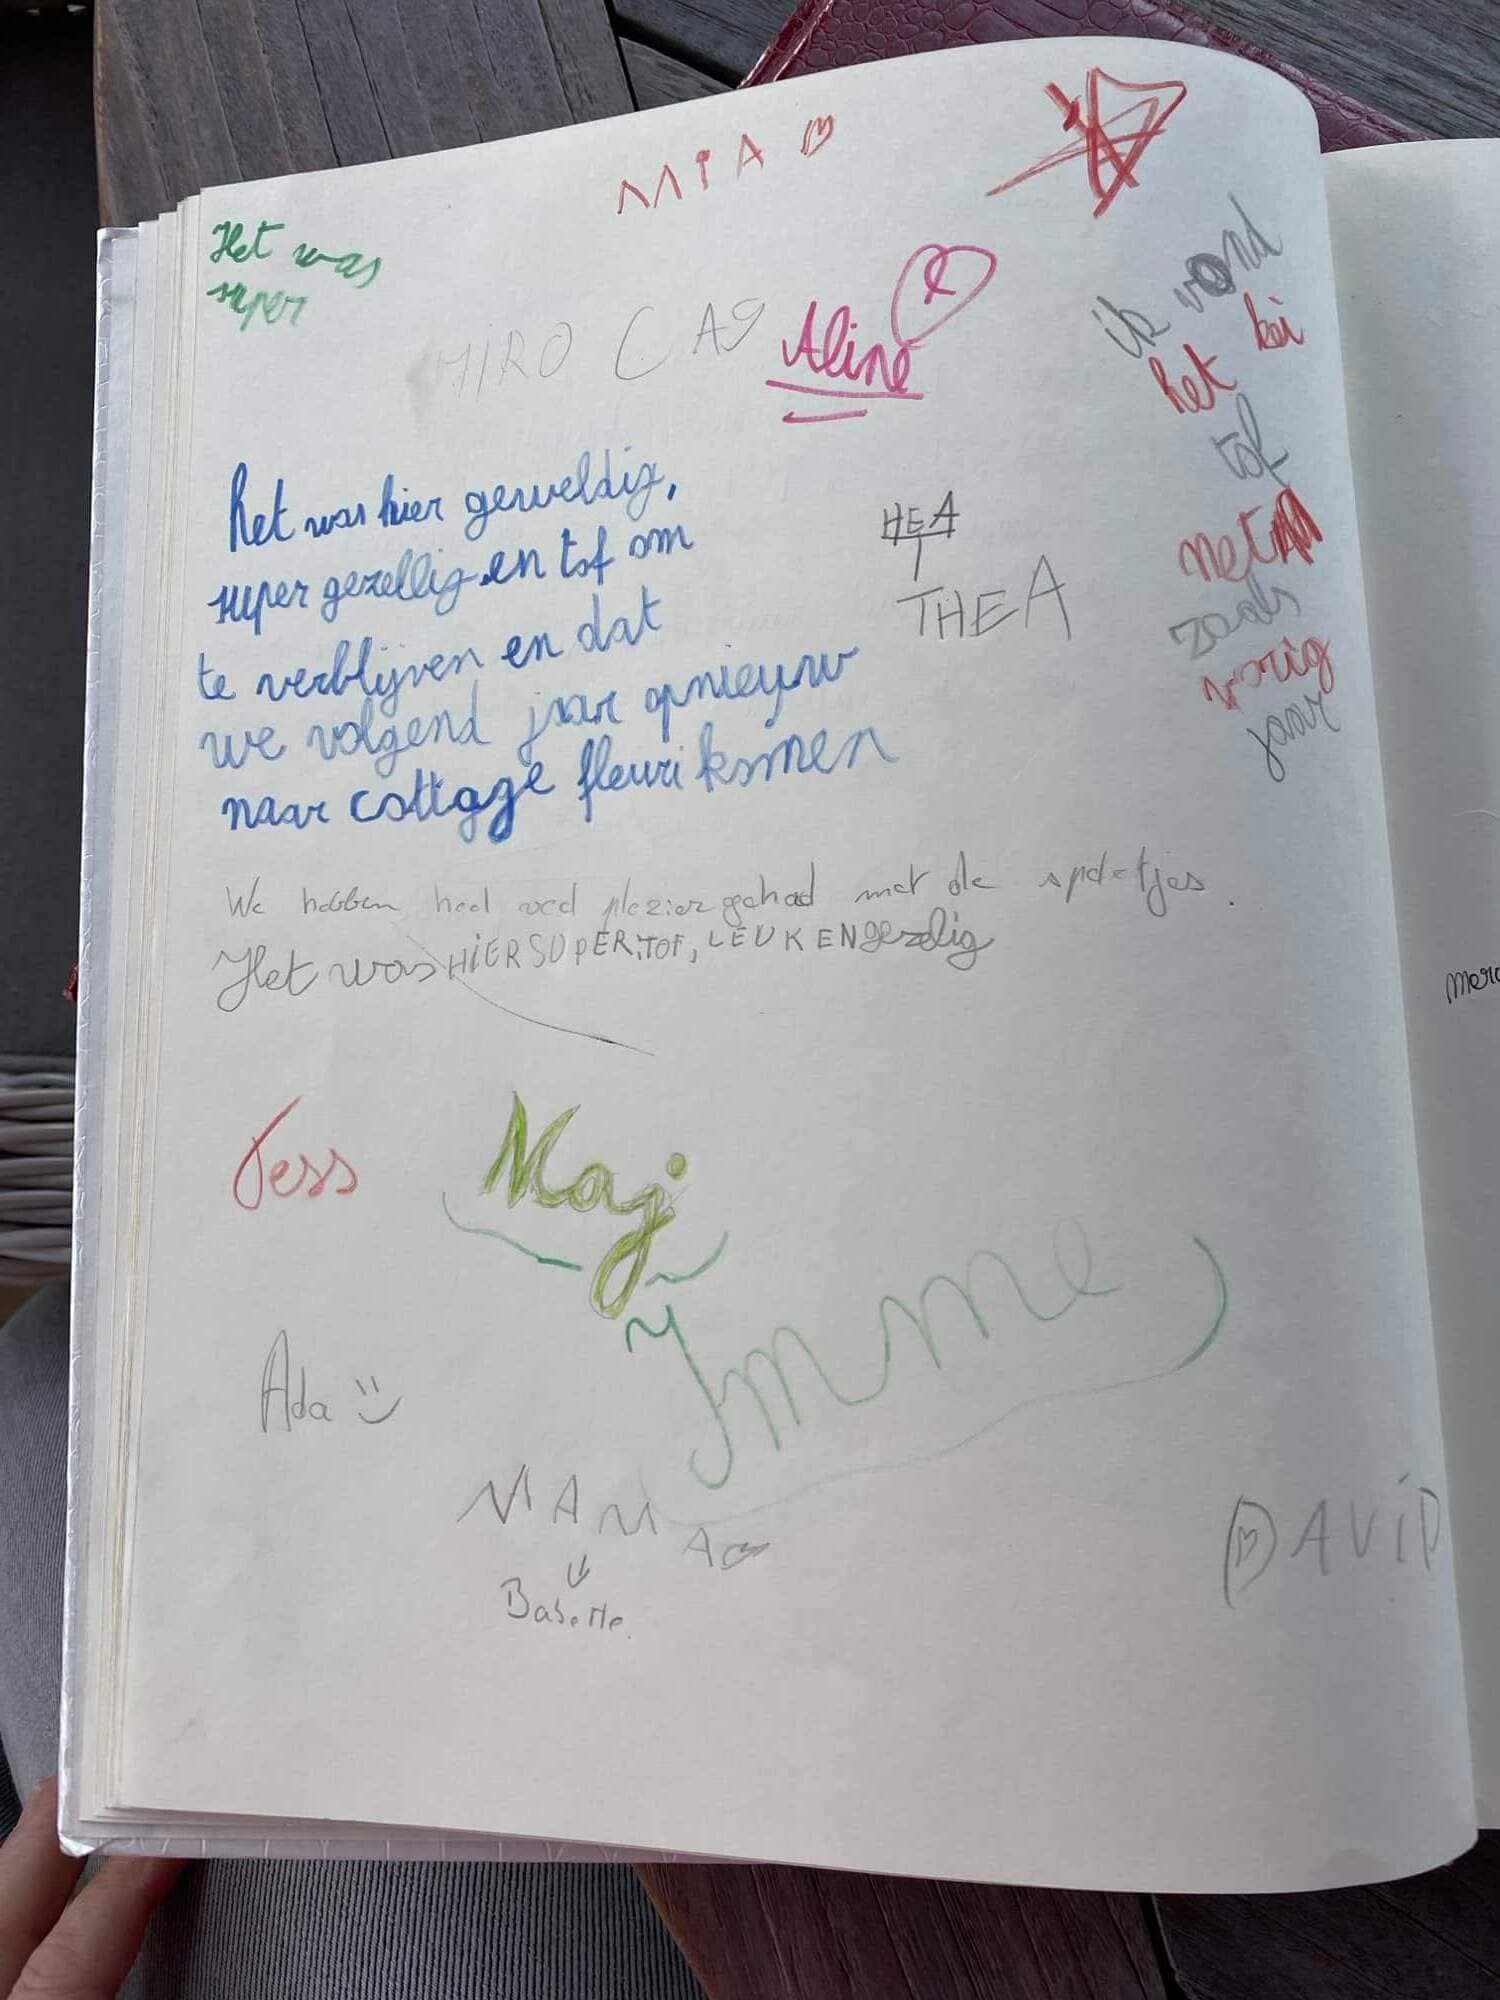 MIA
Het was
super
MIRO CAS
Aline
ik vond
het kei
tof
net
zoals
vorig
jaar
het was hier geweldig,
super gezellig en tof om
te verblijven en dat
we volgend jaar opnieuw
naar cottage fleuri komen
HEA
THEA
We hebben heel veel plezier gehad met de spelletjes.
Het was HIER SUPER, TOF, LEUK EN gezelig
Jess
Maj
Imme
Ada
MAMA
Babette.
DAVID